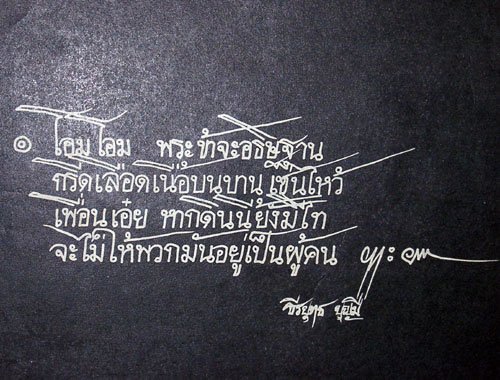 ๏ โอมโอม พระข้าจะอธิษฐาน
กรีดเลือดเนื้อบนบานเซ่นไหว้
เพื่อนเอ๋ย หากดินนี้ยังมีไท
จะไม่ให้พวกมันอยู่เป็นผู้คน ๚ะ๛
ธีรยุทธ บุญมี